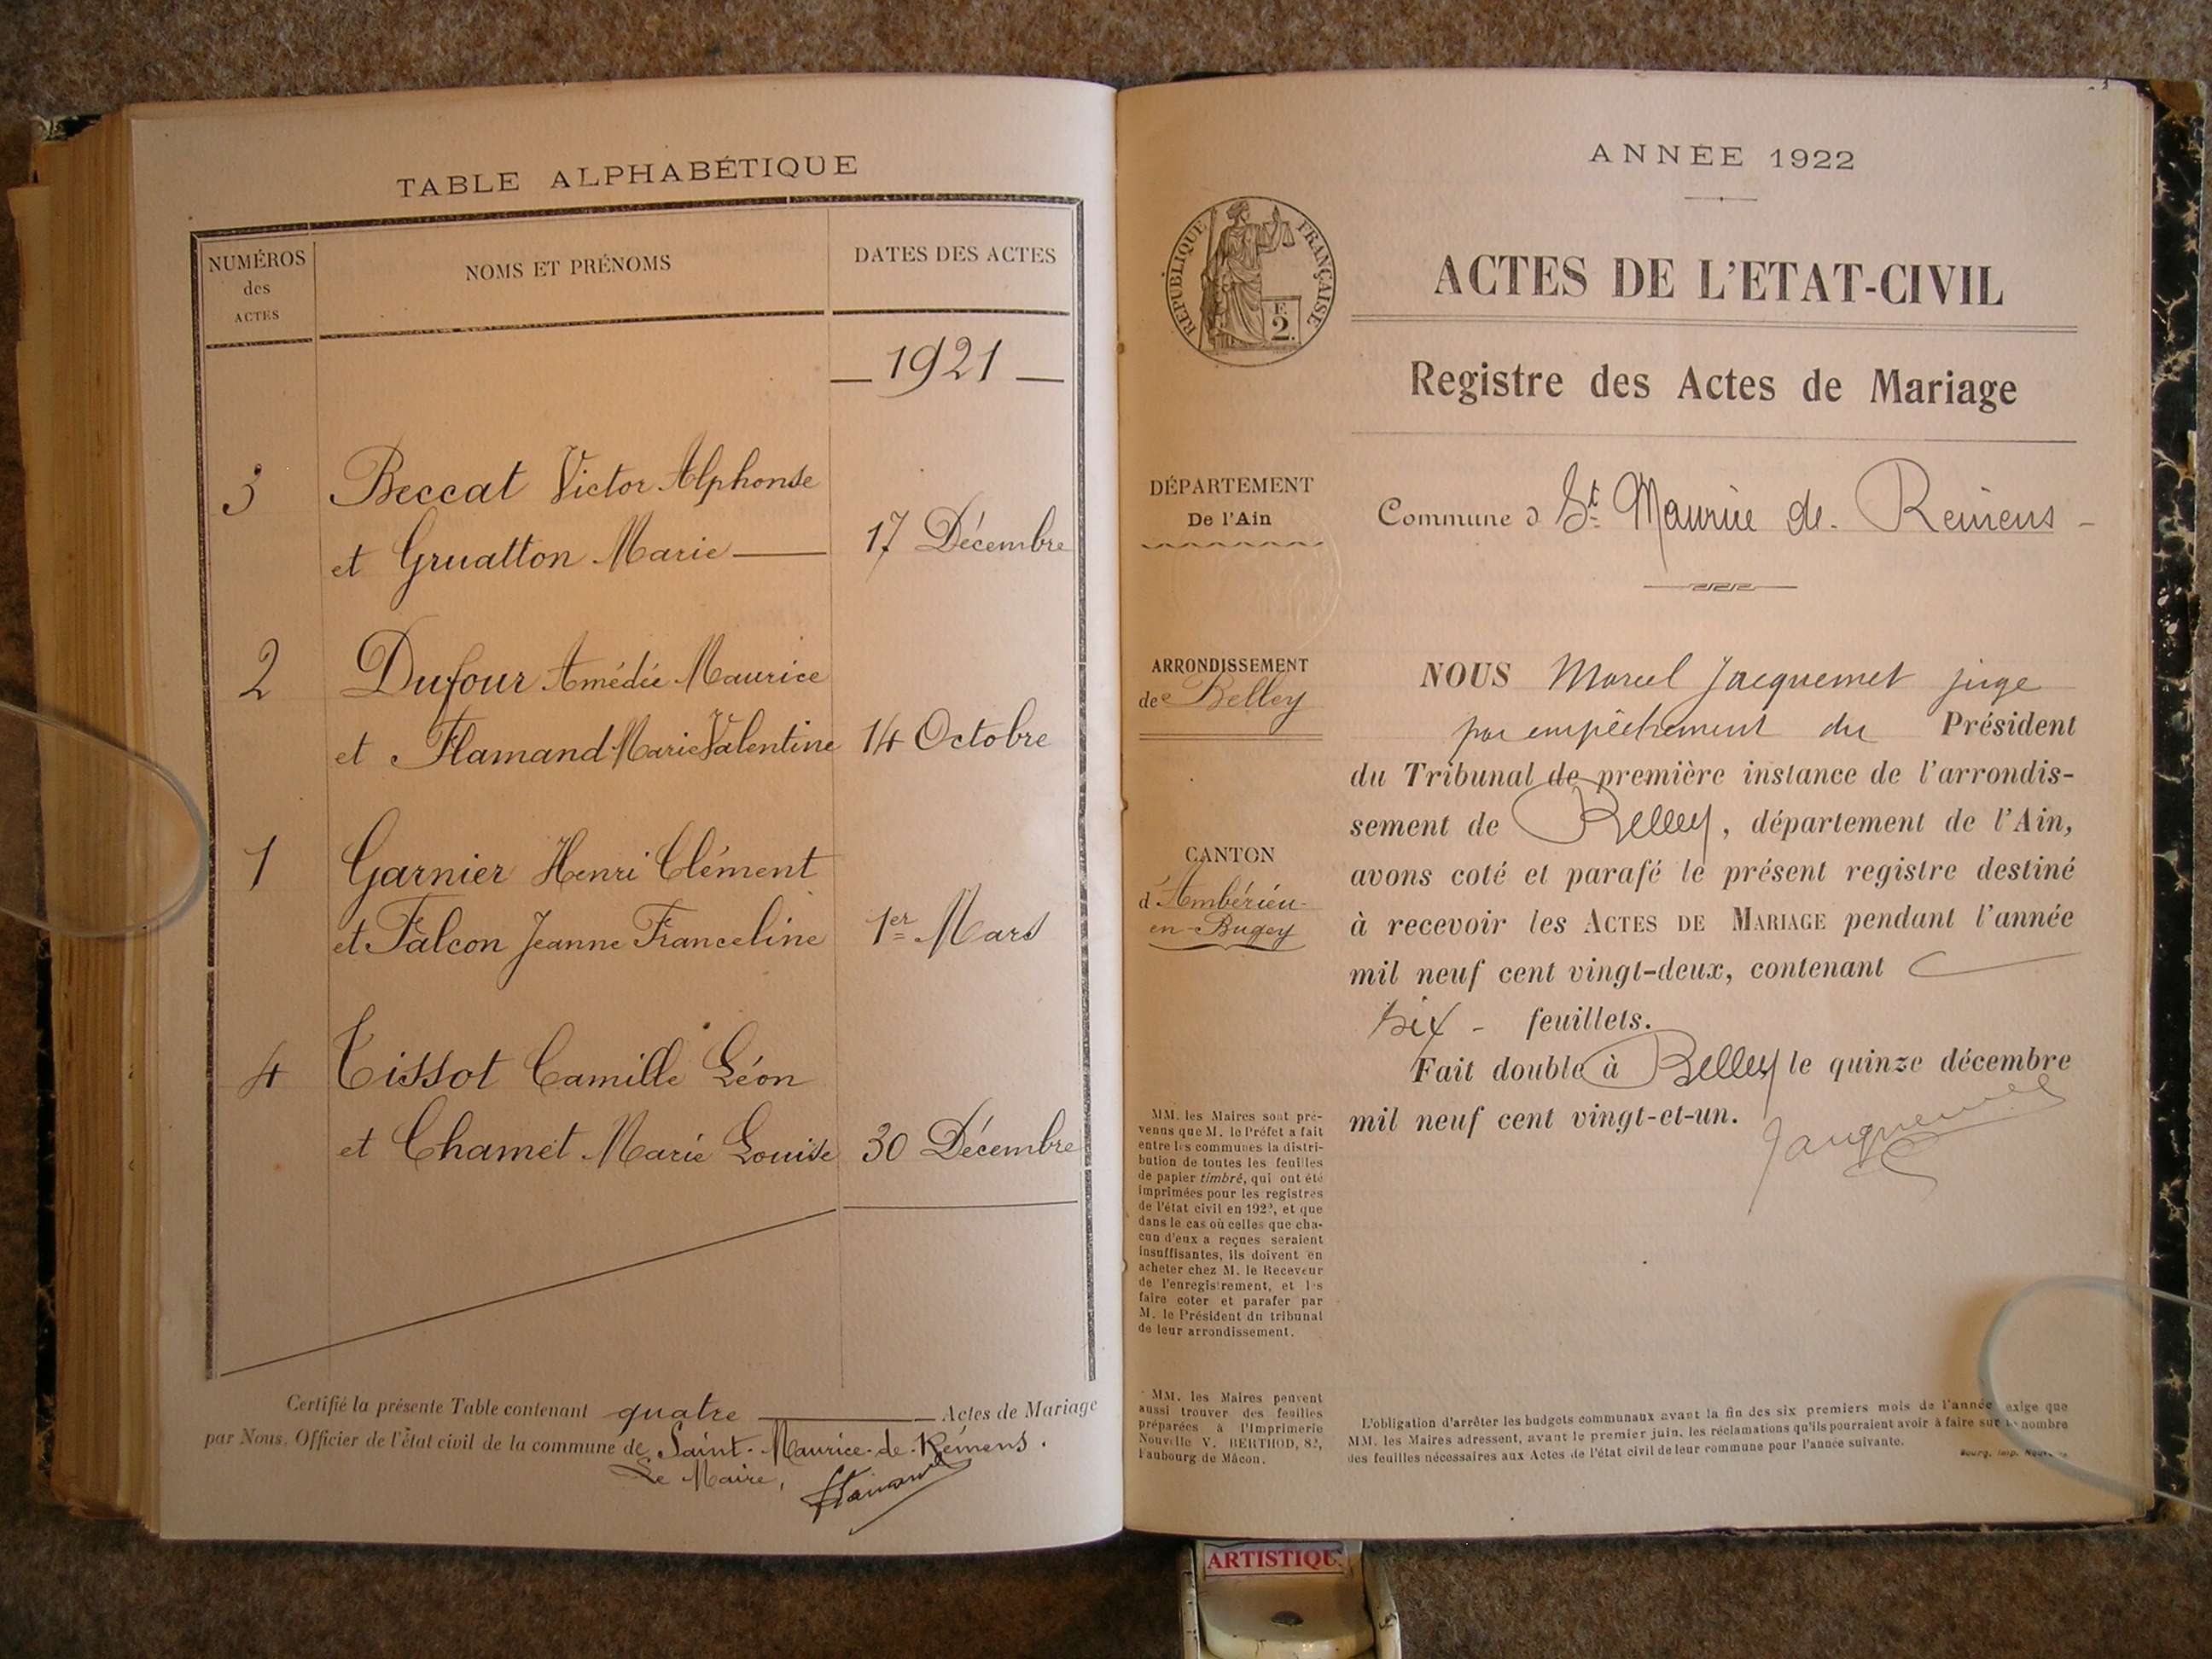 TABLE ALPHABÉTIQUE
NUMÉROS
des
ACTES
NOMS ET PRÉNOMS
DATES DES ACTES
1921
3 Beccat Victor Alphonse
et Gruatton Marie 17 Décembre
2 Dufour Amédée Maurice
et Flamand Marie Valentine 14 Octobre
1 Garnier Henri Clément
et Falcon Jeanne Franceline 1er Mars
4 Tissot Camille Léon
et Chamet Marie Louise 30 Décembre
Certifié la présente Table contenant quatre Actes de Mariage
par Nous, Officier de l'état civil de la commune de Saint-Maurice-de-Rémens.
Le Maire,
ANNÉE 1922
RÉPUBLIQUE FRANÇAISE
F.
2.
ACTES DE L'ETAT-CIVIL
Registre des Actes de Mariage
DÉPARTEMENT
De l'Ain
Commune d St Maurice de Remens
ARRONDISSEMENT
de Belley
CANTON
d'Ambérieu-
en-Bugey
NOUS Marcel Jacquemet juge
par empêchement du Président
du Tribunal de première instance de l'arrondis-
sement de Belley, département de l'Ain,
avons coté et parafé le présent registre destiné
à recevoir les ACTES DE MARIAGE pendant l'année
mil neuf cent vingt-deux, contenant
six - feuillets.
Fait double à Belley le quinze décembre
mil neuf cent vingt-et-un.
Jacquemet
MM. les Maires sont pré-
venus que M. le Préfet a fait
entre les communes la distri-
bution de toutes les feuilles
de papier timbré, qui ont été
imprimées pour les registres
de l'état civil en 1922, et que
dans le cas où celles que cha-
cun d'eux a reçues seraient
insuffisantes, ils doivent en
acheter chez M. le Receveur
de l'enregistrement, et les
faire coter et parafer par
M. le Président du tribunal
de leur arrondissement.
MM. les Maires peuvent
aussi trouver des feuilles
préparées à l'Imprimerie
Nouvelle V. BERTHOD, 82,
Faubourg de Mâcon.
L'obligation d'arrêter les budgets communaux avant la fin des six premiers mois de l'année exige que
MM. les Maires adressent, avant le premier juin, les réclamations qu'ils pourraient avoir à faire sur le nombre
des feuilles nécessaires aux Actes de l'état civil de leur commune pour l'année suivante.
Bourg, Imp.
ARTISTIQU